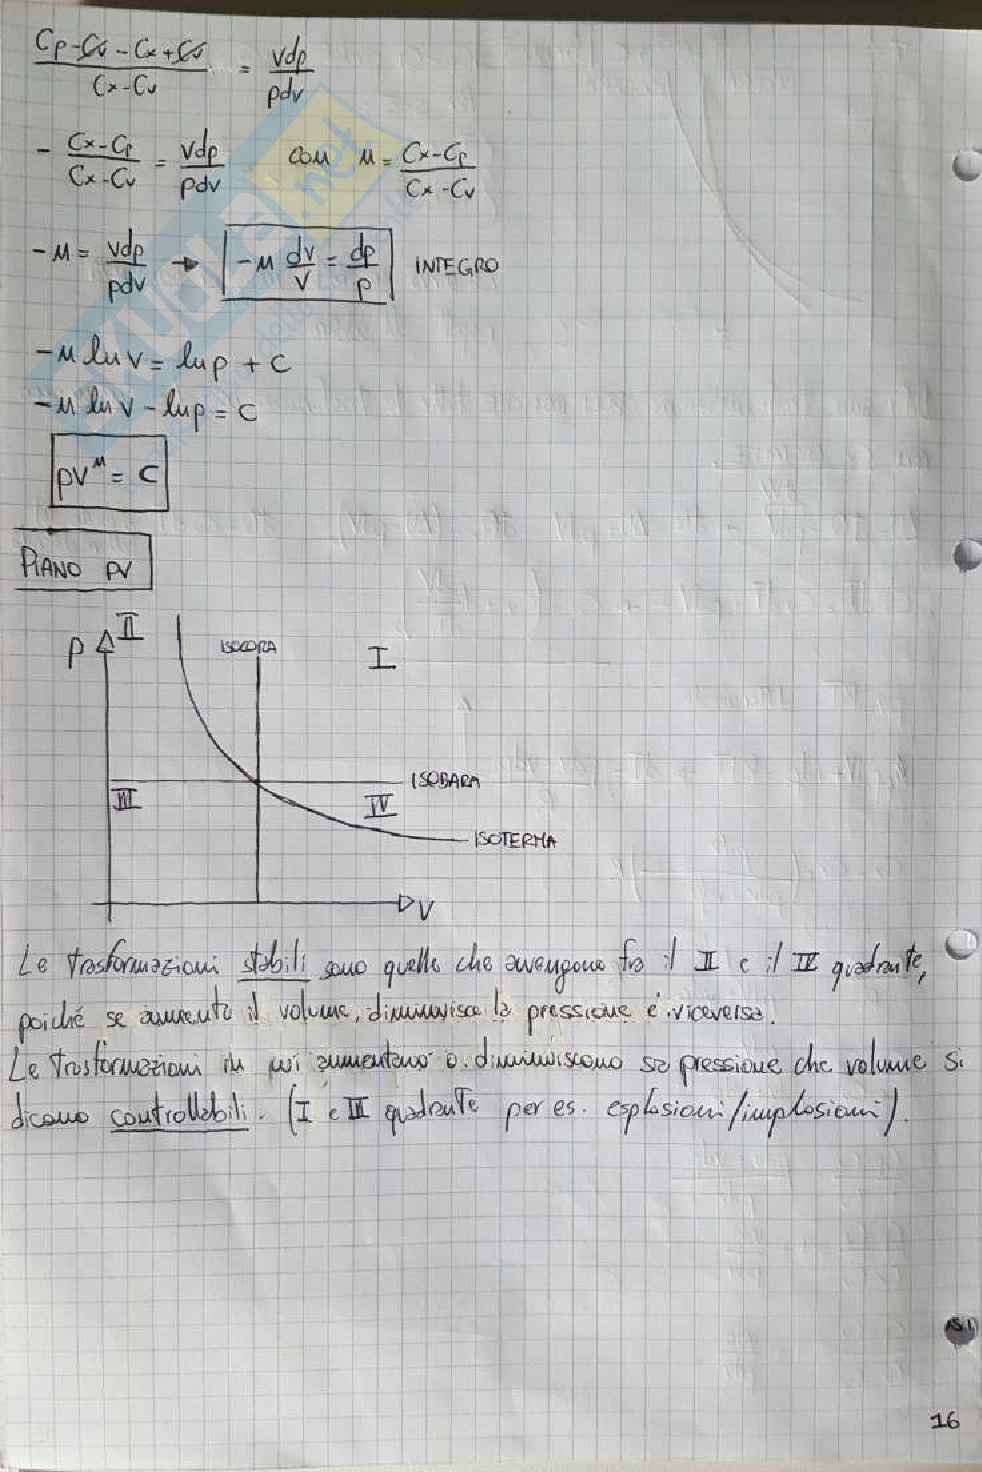 Cp-Cv-Cx+Cv / Cx-Cv = vdp / pdv
- Cx-Cp / Cx-Cv = vdp / pdv con n = Cx-Cp / Cx-Cv
-n = vdp / pdv → -n dv/v = dp/p INTEGRO
-n ln v = ln p + c
-n ln v - ln p = c
pvⁿ = c
PIANO pv
P II ISOCORA I
ISOBARA
III IV
ISOTERMA
V
Le trasformazioni stabili sono quelle che avvengono fra il II e il IV quadrante,
poiché se aumenta il volume, diminuisce la pressione e viceversa.
Le trasformazioni in cui aumentano o diminuiscono sa pressione che volume si
dicono controllabili. (I e III quadrante per es. esplosioni/implosioni).
16
SKUOLA.net